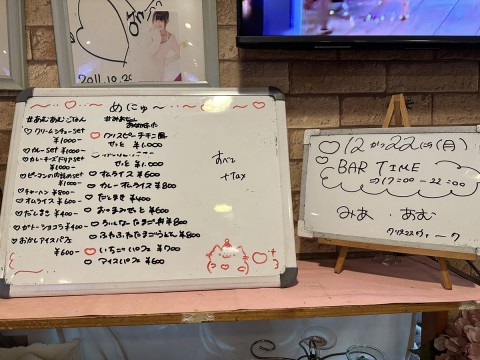 2011.10.20
めにゅ〜
#あむあむごはん
クリームシチューset
¥1000-
カレーset ¥1000-
カレーチーズドリアset
¥1000-
ピーマンの肉詰めset
¥1000-
チャーハン ¥800-
オムライス ¥600-
だしまき ¥400-
ガトーショコラ ¥400-
おかしアイスパフェ
¥600-
クリスピーチキン風
せっと ¥1,000
せっと ¥1,000
オムライス ¥600
カレーオムライス ¥800
だしまき ¥400
おつまみせっと ¥600
ふわふわたまごうどん ¥800
いちごパフェ ¥700
アイスパフェ ¥600
すべて
+Tax
12月22日(月)
BAR TIME
⇒17:00-22:00
みあ・あむ
クリスマスウィーク